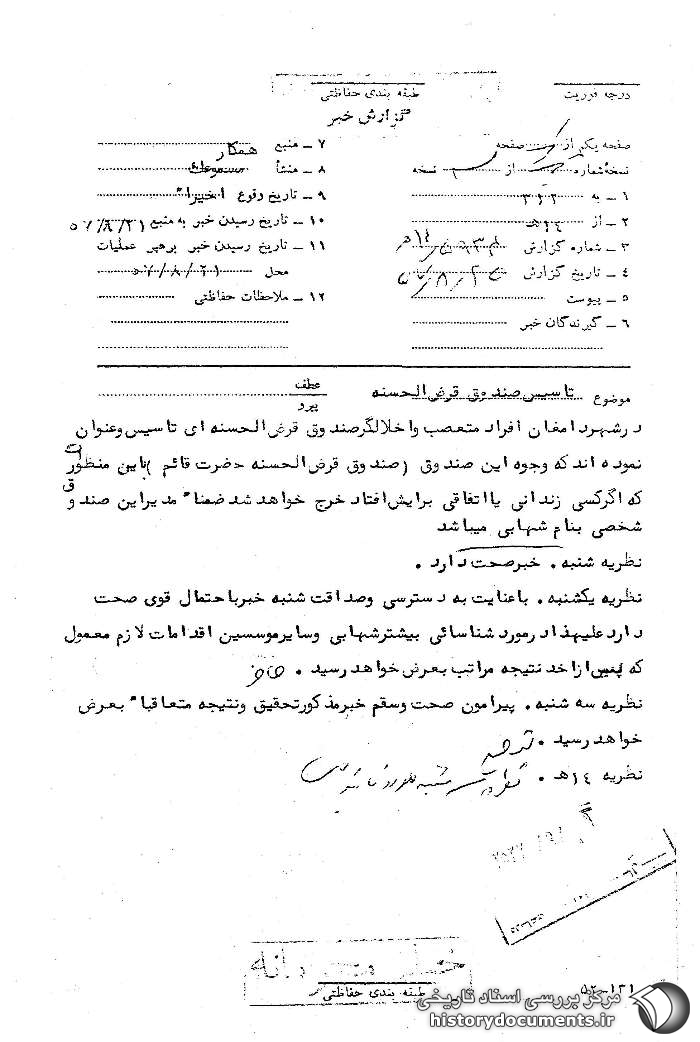 درجه فوریت
طبقه بندی حفاظتی
گزارش خبر
صفحه یکم از یک صفحه
نسخه شماره از نسخه
۱ ـ به ۳۱۲
۲ ـ از ۱۴هـ
۳ ـ شماره گزارش
۴ ـ تاریخ گزارش
۵ ـ پیوست
۶ ـ گیرندگان خبر
۷ ـ منبع همکار
۸ ـ منشأ مسموعات
۹ ـ تاریخ وقوع اخیرا"
۱۰ ـ تاریخ رسیدن خبر به منبع ۵۷/۸/۲۱
۱۱ ـ تاریخ رسیدن خبر برهبر عملیات
محل ۵۷/۸/۲۱
۱۲ ـ ملاحظات حفاظتی
موضوع تاسیس صندوق قرض الحسنه
عطف
پیرو
در شهر دامغان افراد متعصب واخلالگر صندوق قرض الحسنه ای تاسیس وعنوان
نموده اند که وجوه این صندوق (صندوق قرض الحسنه حضرت قائم ) باین منظور است
که اگر کسی زندانی یا اتفاقی برایش افتاد خرج خواهد شد ضمنا" مدیر این صندوق
شخصی بنام شهابی میباشد
نظریه شنبه . خبر صحت دارد .
نظریه یکشنبه . باعنایت به دسترسی وصداقت شنبه خبر باحتمال قوی صحت
دارد علیهذا در مورد شناسائی بیشتر شهابی وسایر موسسین اقدامات لازم معمول
که پس از اخذ نتیجه مراتب بعرض خواهد رسید .
نظریه سه شنبه . پیرامون صحت وسقم خبر مذکور تحقیق ونتیجه متعاقبا" بعرض
خواهد رسید .
نظریه ۱۴هـ . نظریه سه شنبه مورد تائید است
خیلی محرمانه
طبقه بندی حفاظتی
۵۲-۱۳۱
مرکز بررسی اسناد تاریخی
historydocuments.ir